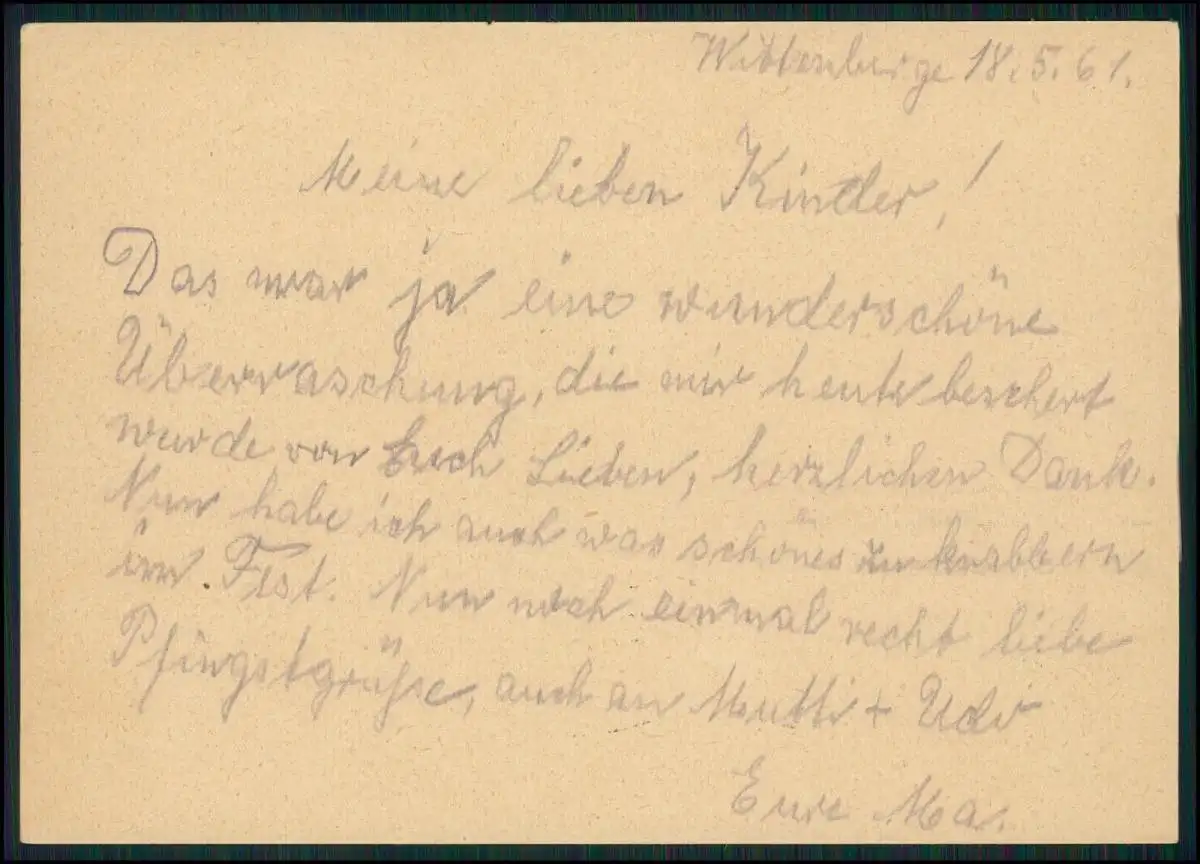 Wittenberge 18.5.61.
Meine lieben Kinder!
Das war ja eine wunderschöne
Überraschung, die mir heute beschert
wurde von Euch Lieben, herzlichen Dank.
Nun habe ich auch was schönes zu knabbern
im Fest. Nun noch einmal recht liebe
Pfingstgrüße, auch an Mutti +
Eure Ma.